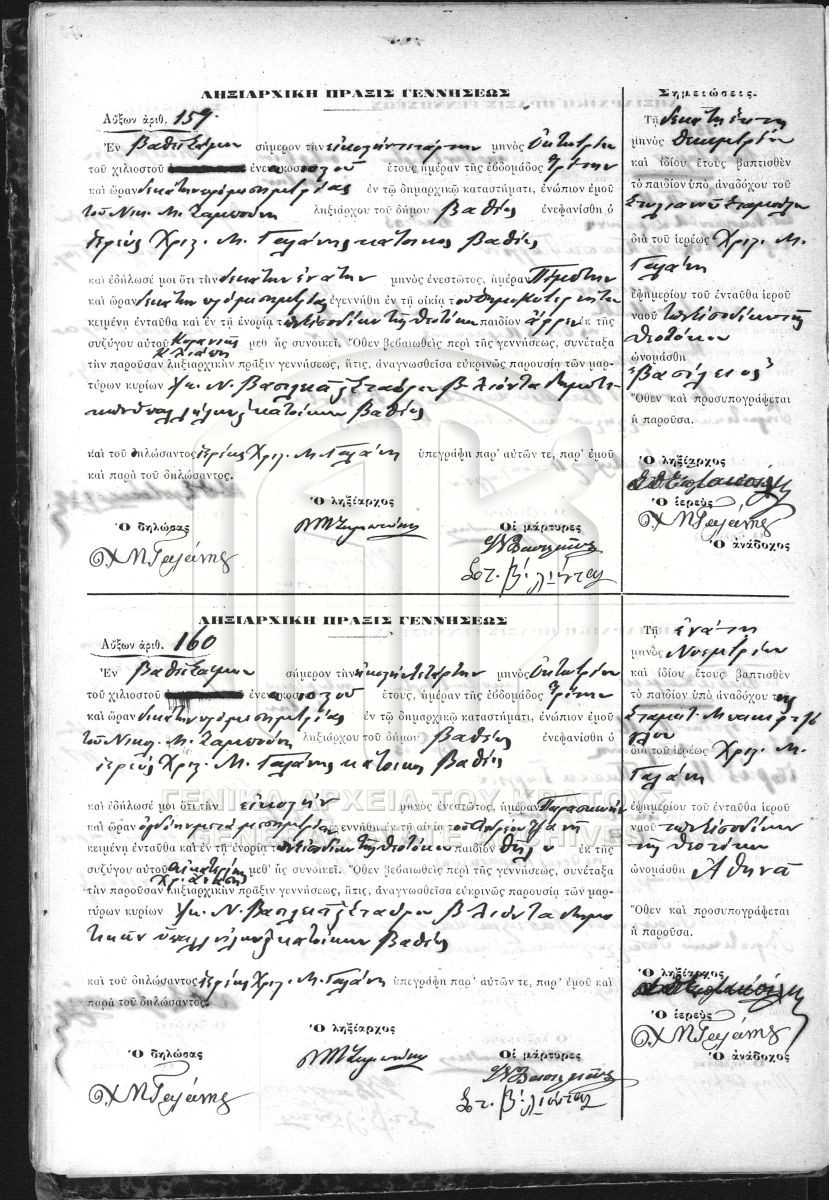 ΛΗΞΙΑΡΧΙΚΗ ΠΡΑΞΙΣ ΓΕΝΝΗΣΕΩΣ
Αὔξων ἀριθ. 159.
Ἐν Βαθεῖ Σάμου σήμερον τὴν εἰκοστὴν τετάρτην μηνὸς Ὀκτωβρίου
τοῦ χιλιοστοῦ ἐνεακοσιοστοῦ ἔτους ἡμέραν τῆς ἑβδομάδος Τρίτην
καὶ ὥραν δεκάτην πρὸ μεσημβρίας ἐν τῷ δημαρχικῷ καταστήματι, ἐνώπιον ἐμοῦ
τοῦ Νικ. Μ. ληξιάρχου τοῦ δήμου Βαθέος ἐνεφανίσθη ὁ
ἱερεὺς Χριζ. Μ. Γαλάνης κάτοικος Βαθέος
καὶ ἐδήλωσέ μοι ὅτι τὴν δεκάτην ἐνάτην μηνὸς ἐνεστῶτος, ἡμέραν Πέμπτην
καὶ ὥραν δεκάτην πρὸ μεσημβρίας ἐγεννήθη ἐν τῇ οἰκίᾳ τοῦ
κειμένη ἐνταῦθα καὶ ἐν τῇ ἐνορίᾳ τῶν Εἰσοδίων τῆς Θεοτόκου παιδίον ἄρρεν ἐκ τῆς
συζύγου αὐτοῦ μεθ' ἧς συνοικεῖ. Ὅθεν βεβαιωθεὶς περὶ τῆς γεννήσεως, συνέταξα
τὴν παροῦσαν ληξιαρχικὴν πρᾶξιν γεννήσεως, ἥτις, ἀναγνωσθεῖσα εὐκρινῶς παρουσίᾳ τῶν μαρ-
τύρων κυρίων Ν. Βασιλειάδη Σταύρου Βλιόντα δημοτι-
κῶν ὑπαλλήλων κατοίκων Βαθέος
καὶ τοῦ δηλώσαντος ἱερέως Χριζ. Μ. Γαλάνη ὑπεγράφη παρ' αὐτῶν τε, παρ' ἐμοῦ
καὶ παρὰ τοῦ δηλώσαντος.
Ὁ ληξίαρχος
Ὁ δηλώσας Οἱ μάρτυρες
Χ Μ Γαλάνης
Στ. Βλιόντας
Σημειώσεις.
Τῇ δεκάτῃ
μηνὸς Δεκεμβρίου
καὶ ἰδίου ἔτους βαπτισθὲν
τὸ παιδίον ὑπὸ ἀναδόχου τοῦ
Στυλιανοῦ
διὰ τοῦ ἱερέως Χριζ. Μ.
Γαλάνη
ἐφημερίου τοῦ ἐνταῦθα ἱεροῦ
ναοῦ τῶν Εἰσοδίων τῆς
Θεοτόκου
ὠνομάσθη
Βασίλειος
Ὅθεν καὶ προσυπογράφεται
ἡ παροῦσα.
Ὁ ληξίαρχος
Ὁ ἱερεὺς
Χ Μ Γαλάνης
Ὁ ἀνάδοχος
ΛΗΞΙΑΡΧΙΚΗ ΠΡΑΞΙΣ ΓΕΝΝΗΣΕΩΣ
Αὔξων ἀριθ. 160
Ἐν Βαθεῖ Σάμου σήμερον τὴν εἰκοστὴν τετάρτην μηνὸς Ὀκτωβρίου
τοῦ χιλιοστοῦ ἐνεακοσιοστοῦ ἔτους, ἡμέραν τῆς ἑβδομάδος Τρίτην
καὶ ὥραν δεκάτην πρὸ μεσημβρίας ἐν τῷ δημαρχικῷ καταστήματι, ἐνώπιον ἐμοῦ
τοῦ Νικ. Μ. ληξιάρχου τοῦ δήμου Βαθέος ἐνεφανίσθη ὁ
ἱερεὺς Χριζ. Μ. Γαλάνης κάτοικος Βαθέος
καὶ ἐδήλωσέ μοι ὅτι τὴν εἰκοστὴν μηνὸς ἐνεστῶτος, ἡμέραν Παρασκευὴν
καὶ ὥραν ὀγδόην μετὰ μεσημβρίαν ἐγεννήθη ἐν τῇ οἰκίᾳ τοῦ
κειμένη ἐνταῦθα καὶ ἐν τῇ ἐνορίᾳ τῶν Εἰσοδίων τῆς Θεοτόκου παιδίον θῆλυ ἐκ τῆς
συζύγου αὐτοῦ Αἰκατερίνης μεθ' ἧς συνοικεῖ. Ὅθεν βεβαιωθεὶς περὶ τῆς γεννήσεως, συνέταξα
τὴν παροῦσαν ληξιαρχικὴν πρᾶξιν γεννήσεως, ἥτις, ἀναγνωσθεῖσα εὐκρινῶς παρουσίᾳ τῶν μαρ-
τύρων κυρίων Ν. Βασιλειάδη Σταύρου Βλιόντα δημο-
τικῶν ὑπαλλήλων κατοίκων Βαθέος
καὶ τοῦ δηλώσαντος ἱερέως Χριζ. Μ. Γαλάνη ὑπεγράφη παρ' αὐτῶν τε, παρ' ἐμοῦ καὶ
παρὰ τοῦ δηλώσαντος.
Ὁ ληξίαρχος
Ὁ δηλώσας Οἱ μάρτυρες
Χ Μ Γαλάνης
Στ. Βλιόντας
Τῇ ἐνάτῃ
μηνὸς Νοεμβρίου
καὶ ἰδίου ἔτους βαπτισθὲν
τὸ παιδίον ὑπὸ ἀναδόχου τῆς
Σταματ.
διὰ τοῦ ἱερέως Χριζ. Μ.
Γαλάνη
ἐφημερίου τοῦ ἐνταῦθα ἱεροῦ
ναοῦ τῶν Εἰσοδίων
τῆς Θεοτόκου
ὠνομάσθη Ἀθηνᾶ
Ὅθεν καὶ προσυπογράφεται
ἡ παροῦσα.
Ὁ ληξίαρχος
Ὁ ἱερεὺς
Χ Μ Γαλάνης
Ὁ ἀνάδοχος
ΓΕΝΙΚΑ ΑΡΧΕΙΑ ΤΟΥ ΚΡΑΤΟΥΣ